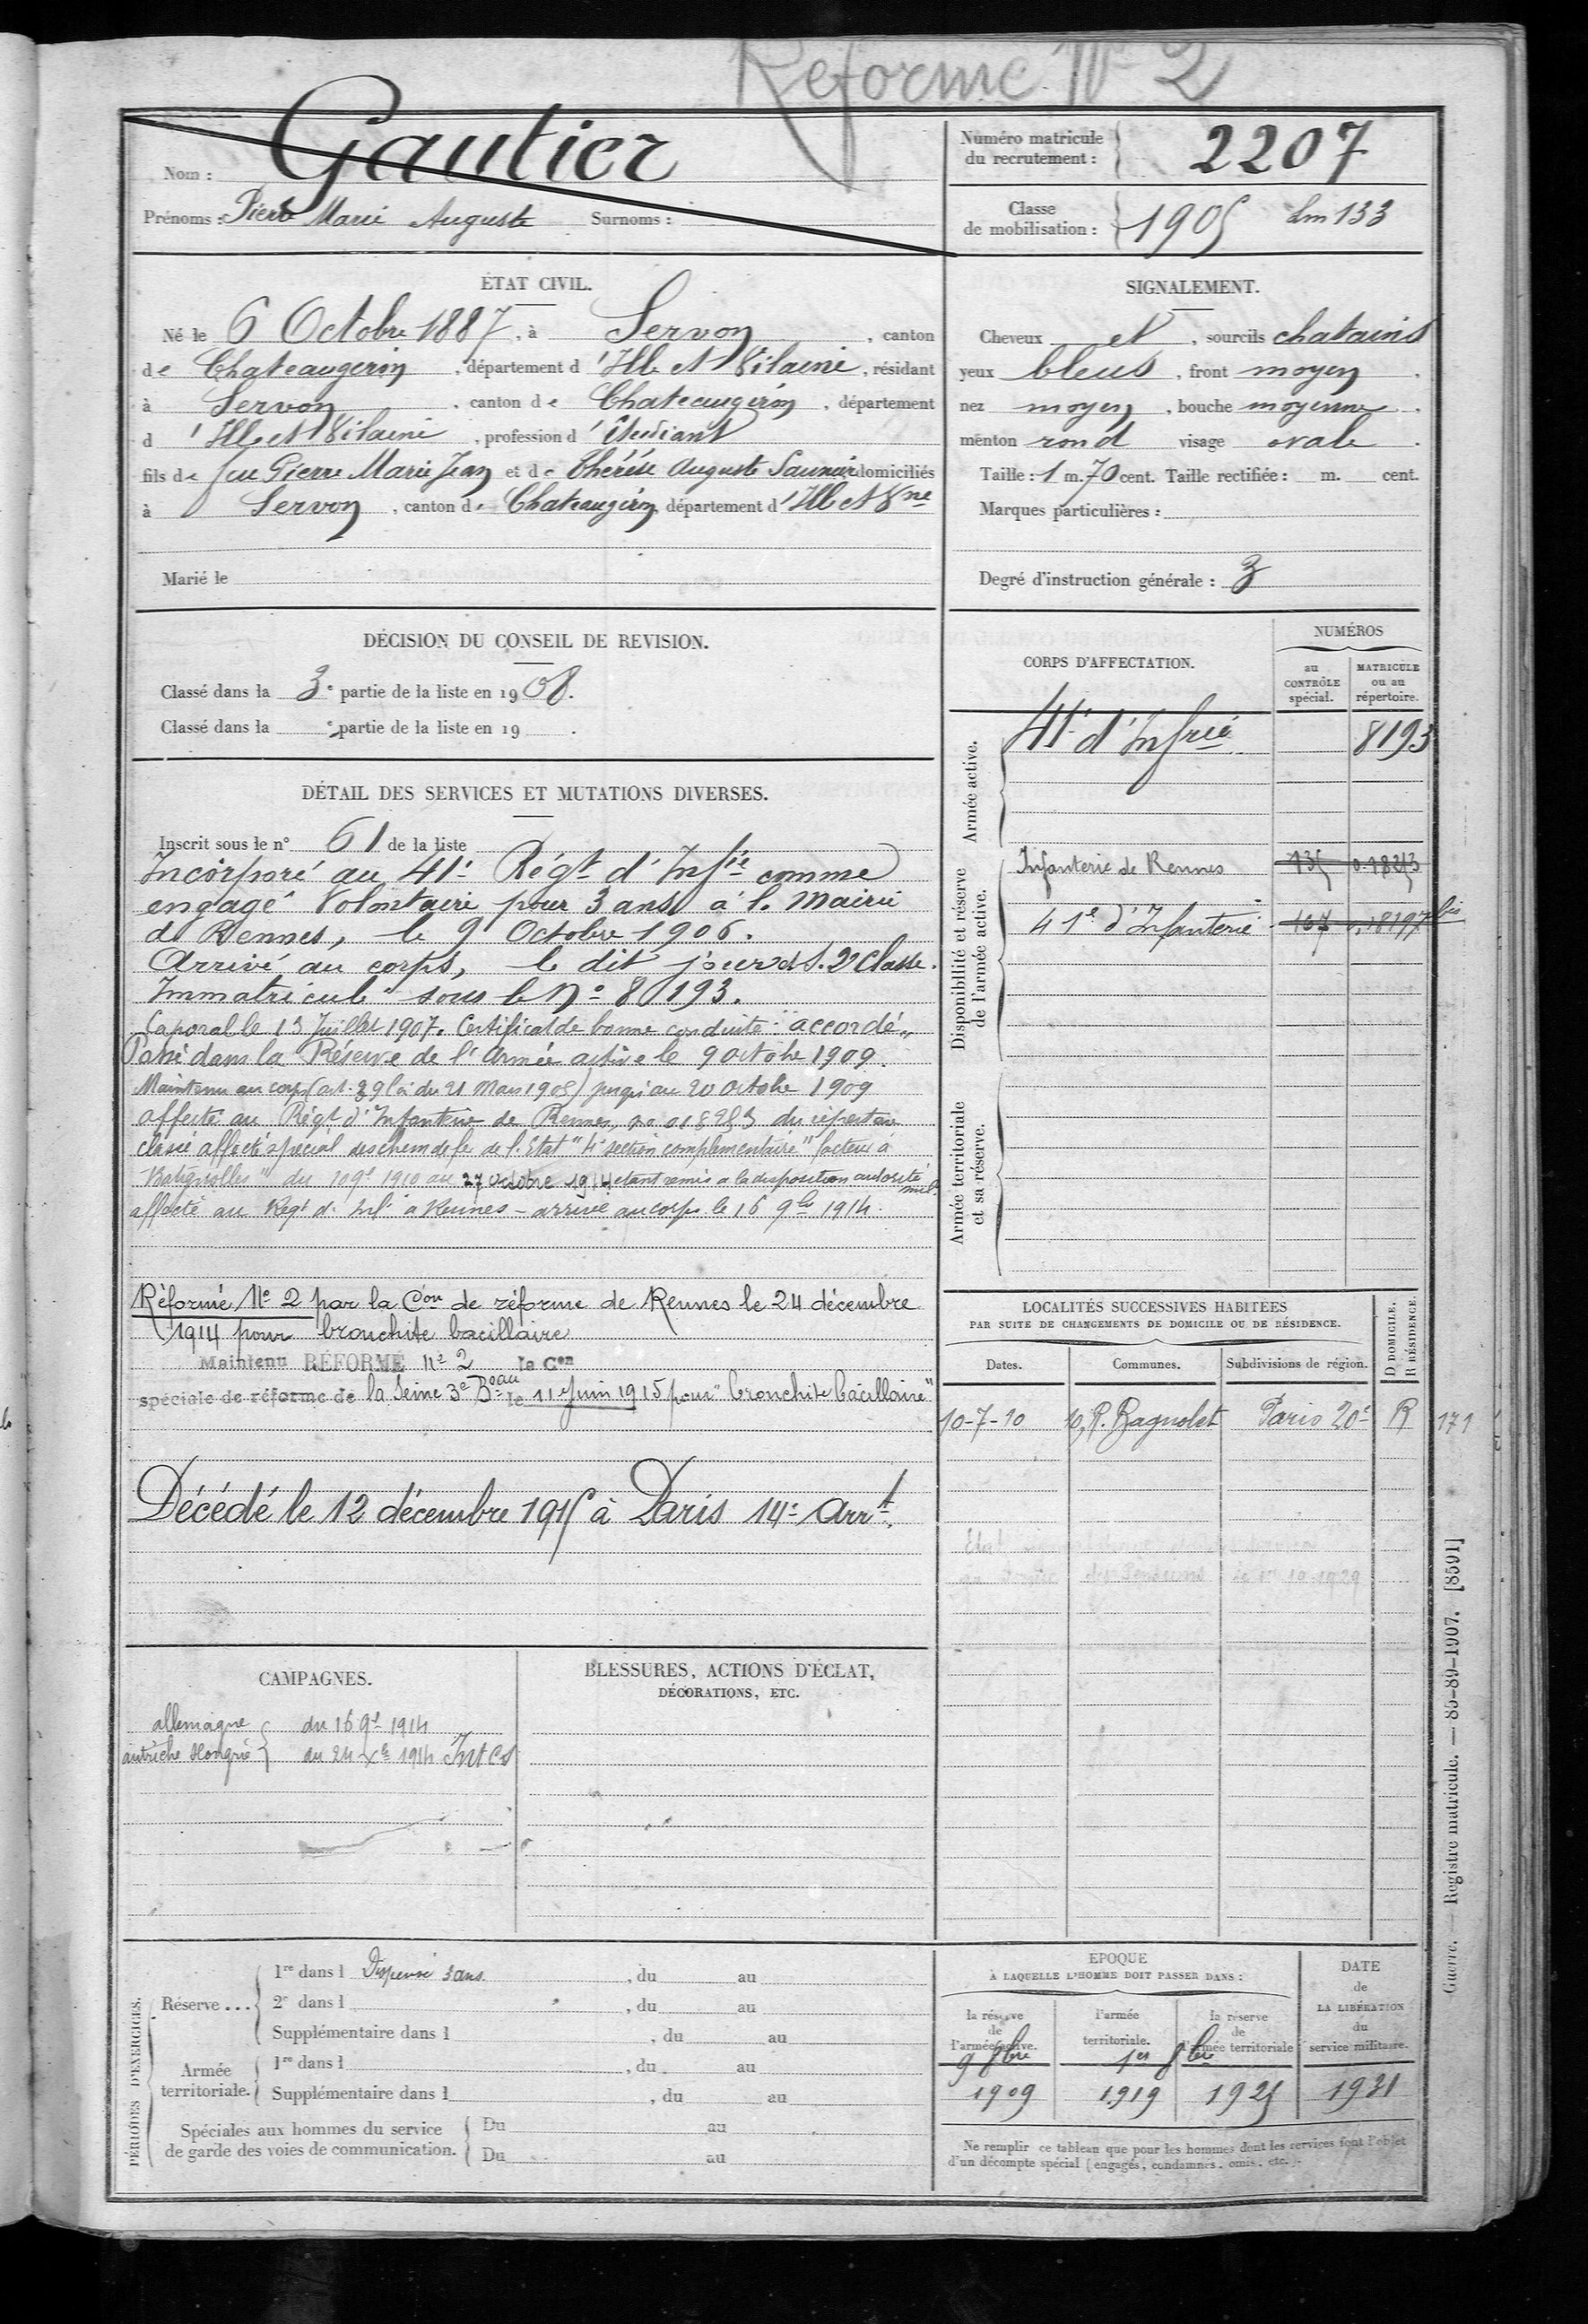 Réforme N° 2
Nom : Gautier
Prénoms : Pierre Marie Auguste Surnoms :
Numéro matricule
du recrutement :
2207
Classe
de mobilisation :
1905 Lm 133
ÉTAT CIVIL.
Né le 6 Octobre 1887, à Servon, canton
de Chateaugiron, département d'Ille et Vilaine, résidant
à Servon, canton de Chateaugiron, département
d'Ille et Vilaine, profession d'Etudiant
fils de feu Pierre Marie Jean et de Thérèse Auguste Saunier domiciliés
à Servon, canton de Chateaugiron, département d'Ille et Vne
Marié le
SIGNALEMENT.
Cheveux et, sourcils chatains
yeux bleus, front moyen.
nez moyen, bouche moyenne.
menton rond visage ovale.
Taille : 1 m. 70 cent. Taille rectifiée : m. cent.
Marques particulières :
Degré d'instruction générale : 3
DÉCISION DU CONSEIL DE REVISION.
Classé dans la 3e partie de la liste en 1908.
Classé dans la e partie de la liste en 19 .
DÉTAIL DES SERVICES ET MUTATIONS DIVERSES.
Inscrit sous le n° 61 de la liste
Incorporé au 41e Régt d'Infie comme
engagé Volontaire pour 3 ans à la Mairie
de Rennes, le 9 Octobre 1906.
Arrivé au corps, le dit jour et S. 2e Classe.
Immatriculé sous le N° 8193.
Caporal le 13 Juillet 1907. Certificat de bonne conduite : "accordé"
Passé dans la Réserve de l'Armée active le 9 octobre 1909.
Maintenu au corps (art. 39 loi du 21 Mars 1905) jusqu'au 20 octobre 1909
affecté au Régt d'Infanterie de Rennes, no 018253 du répertoire
classé affecté spécial des chem de fer de l'Etat "4e section complémentaire" facteur à
Batignolles" du 10 9e 1910 au 27 octobre 1914 étant remis à la disposition autorité mil.
affecté au Régt d'Infie à Rennes - arrivé au corps le 16 9bre 1914.
Réformé N° 2 par la Con de réforme de Rennes le 24 décembre
1914 pour bronchite bacillaire
Maintenu RÉFORMÉ n° 2 la Con
spéciale de réforme de la Seine 3e Beau le 11 Juin 1915 pour "bronchite bacillaire"
Décédé le 12 décembre 1915 à Paris 14e Arrt.
CORPS D'AFFECTATION.
NUMÉROS
au
CONTRÔLE
spécial.
MATRICULE
ou au
répertoire.
Armée active.
41e d'Infrie 8193
Disponibilité et réserve
de l'armée active.
Infanterie de Rennes 135 0.18253
41e d'Infanterie 107 0.18197 bis
Armée territoriale
et sa réserve.
LOCALITÉS SUCCESSIVES HABITÉES
PAR SUITE DE CHANGEMENTS DE DOMICILE OU DE RÉSIDENCE.
D DOMICILE.
R RÉSIDENCE.
Dates. Communes. Subdivisions de région.
10-7-10 10, R. Bagnolet Paris 20e R 171
CAMPAGNES.
allemagne du 16 9e 1914
autriche Hongrie au 24 Xe 1914 Int Cs
BLESSURES, ACTIONS D'ÉCLAT,
DÉCORATIONS, ETC.
PÉRIODES D'EXERCICES.
Réserve ...
1re dans l Dispensé 3 ans, du au
2e dans l , du au
Supplémentaire dans l , du au
Armée
territoriale.
1re dans l , du au
Supplémentaire dans l , du au
Spéciales aux hommes du service
de garde des voies de communication.
Du au
Du au
ÉPOQUE
À LAQUELLE L'HOMME DOIT PASSER DANS :
la réserve
de
l'armée active.
l'armée
territoriale.
la réserve
de
l'armée territoriale
DATE
de
LA LIBÉRATION
du
service militaire.
9 8bre 1er 8bre
1909 1919 1925 1931
Ne remplir ce tableau que pour les hommes dont les services font l'objet
d'un décompte spécial (engagés, condamnés, omis, etc.).
Guerre. — Registre matricule. — 85-89-1907. [8591]